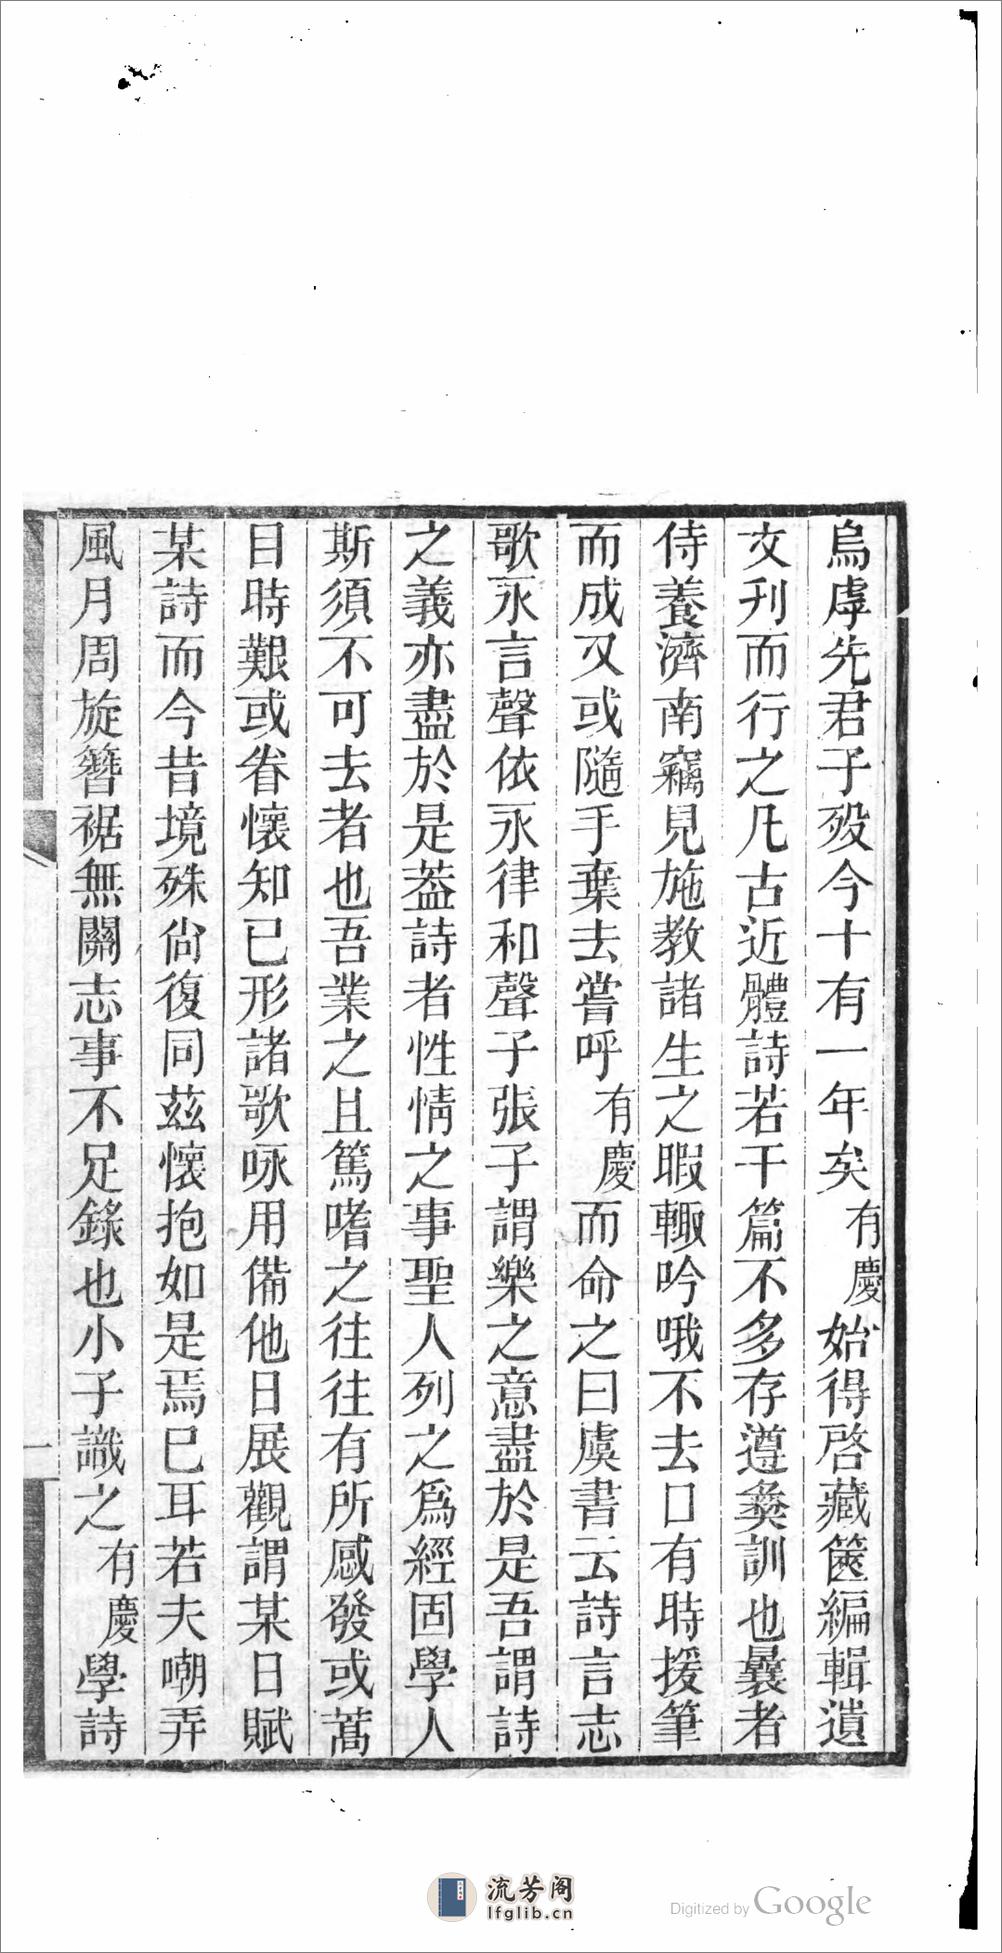 烏虖先君子歿今十有一年矣有慶始得啓藏篋編輯遺
文刋而行之凡古近體詩若干篇不多存遵彝訓也曩者
侍養濟南竊見施教諸生之暇輙吟哦不去口有時援筆
而成又或隨手棄去嘗呼有慶而命之曰虞書云詩言志
歌永言聲依永律和聲子張子謂樂之意盡於是吾謂詩
之義亦盡於是葢詩者性情之事聖人列之爲經固學人
斯須不可去者也吾業之且篤嗜之往往有所感發或蒿
目時艱或眷懷知己形諸歌咏用備他日展觀謂某日賦
某詩而今昔境殊尙復同茲懷抱如是焉已耳若夫嘲弄
風月周旋簪裾無關志事不足錄也小子識之有慶學詩
一
流芳阁
lfglib.cn
Digitized by Google